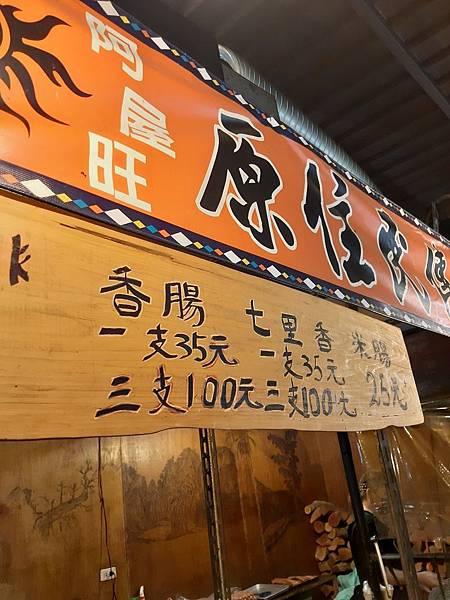 阿屋旺
原住民傳
k
香腸
一支35元
三支100元
七里香
一支35元
三支100元
米腸
25元